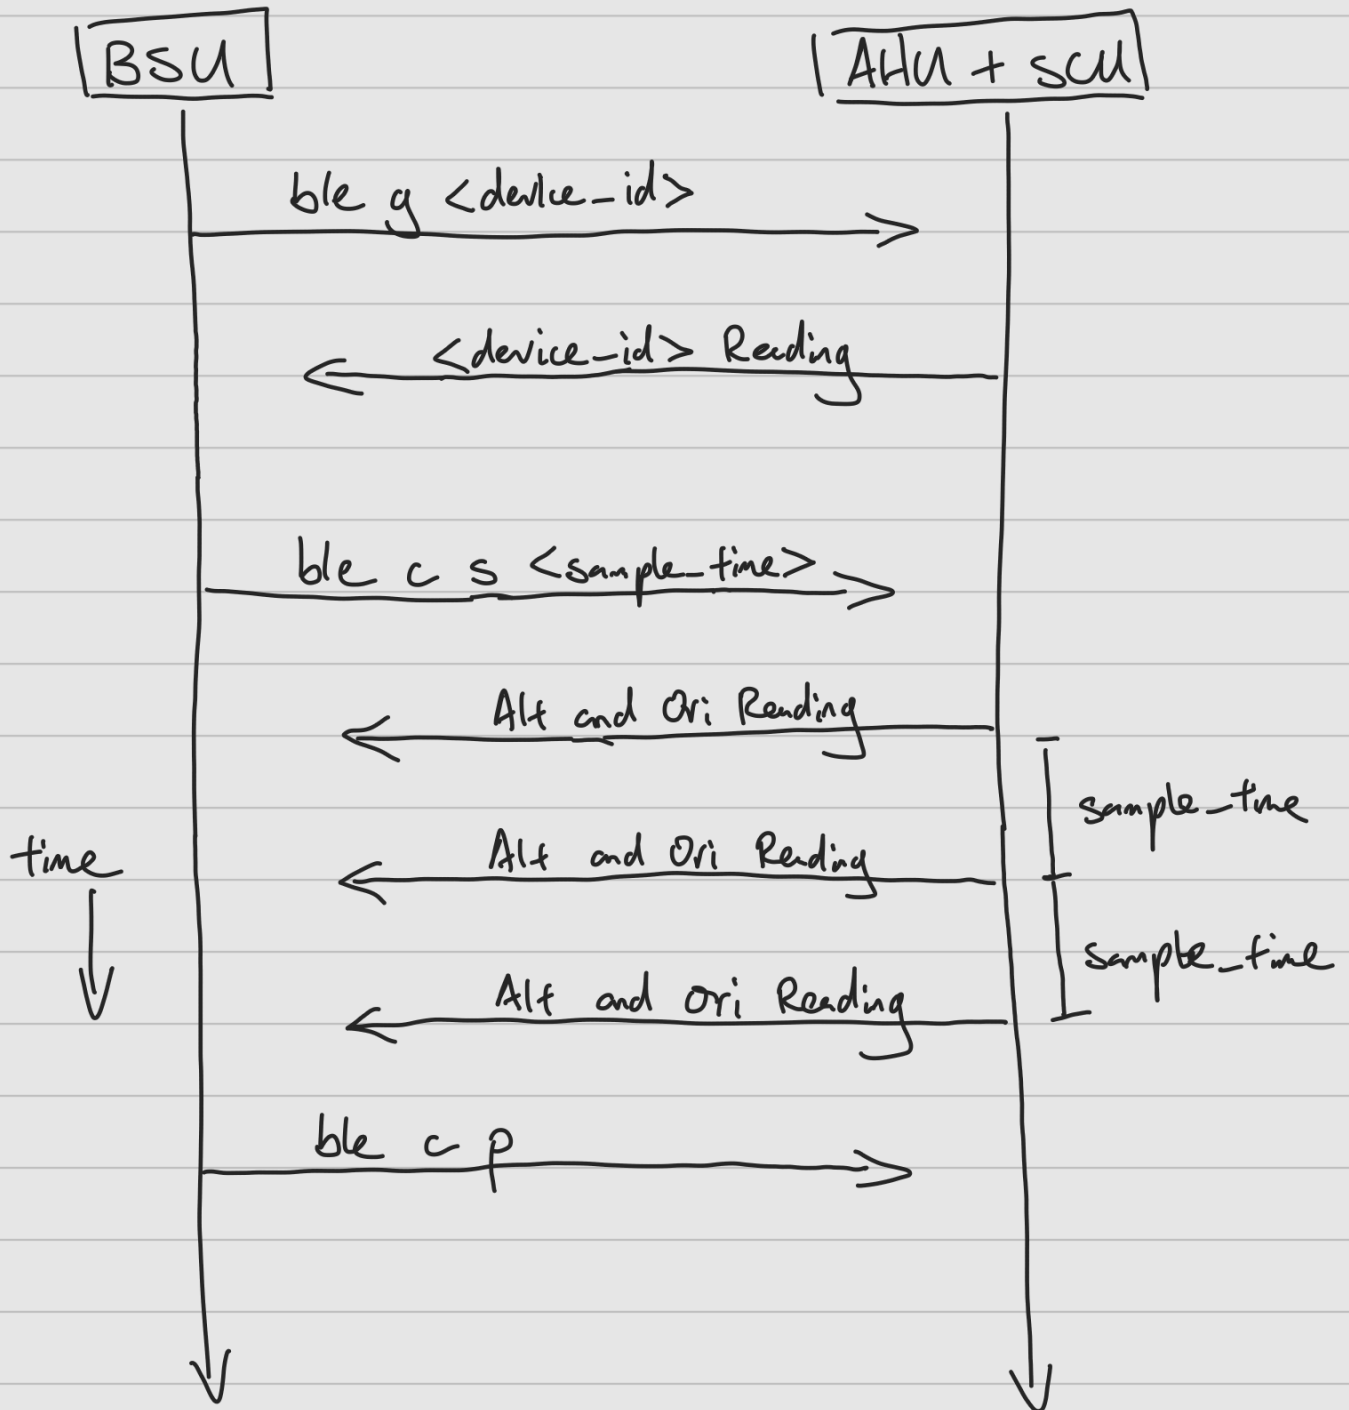 BSU
AHU + SCU
ble g <device_id>
<device_id> Reading
ble c s <sample_time>
Alt and Ori Reading
sample_time
time
Alt and Ori Reading
sample_time
Alt and Ori Reading
ble c p